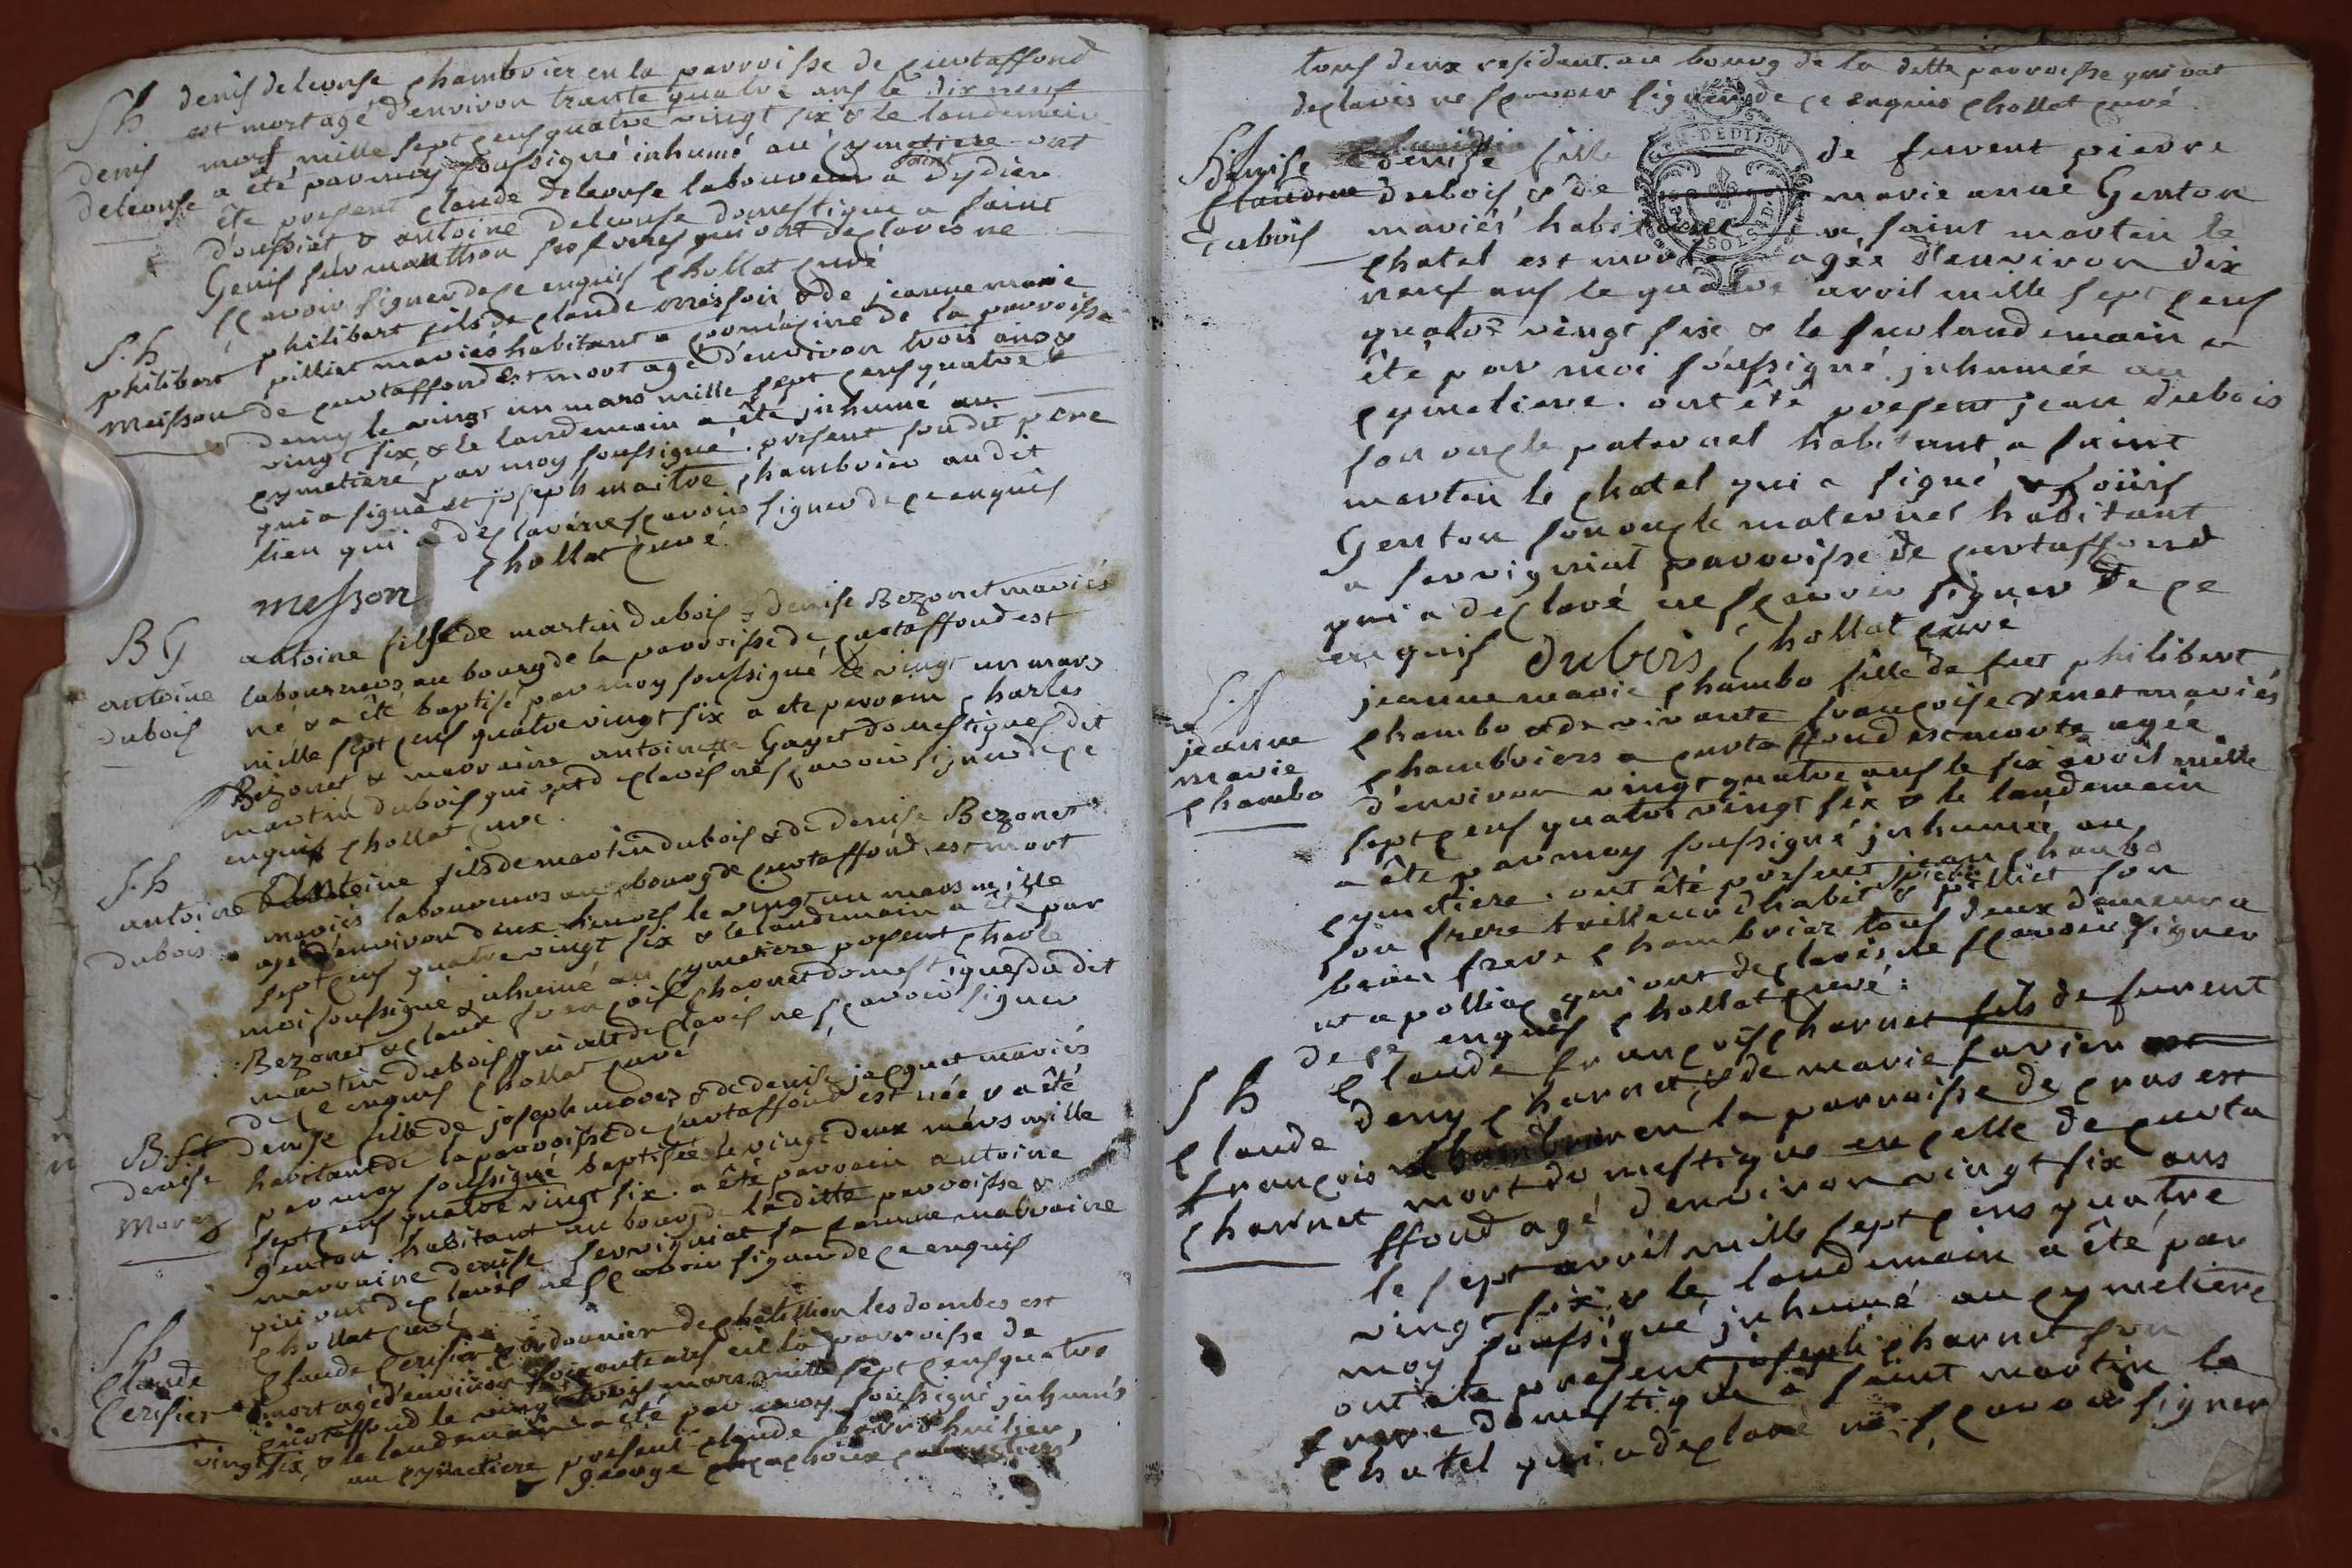 S h
denis deleouse
denis deleouse chambrier en la parroisse de curtaffond
est mort agé d'environ trante quatre ans le dix neuf
mars mille sept cens quatre vingt six & le landemain
a été par moy soussigné inhumé au cymetiere ont
été present claude deleouse laboureur a saint dydier
d'oussiat & antoine deleouse domestique a saint
Genis sur manthon ses freres qui ont declarés ne
sçavoir signer de ce enquis chollat curé
S. h
philibert
Maisson
philibert fils de claude maisson & de jeanne marie
pilliat mariés habitant a de la parroisse
de curtaffond est mort agé d'environ trois ans &
demy le vingt un mars mille sept cens quatre
vingt six & le landemain a été inhumé au
cymetiere par moy soussigné present son dit pere
qui a signé et joseph maitre chambrier au dit
lieu qui a declaré ne sçavoir signer de ce enquis
messon chollat curé
B G
antoine
dubois
antoine fils de martin dubois & denise Bezonet mariés
laboureurs au bourg de la parroisse de curtaffond est
né & a été baptisé par moy soussigné le vingt un mars
mille sept cens quatre vingt six a ete parrain charles
Bezonet & marraine antoinette Gayet domestiques dit
martin dubois qui ont declarés ne sçavoir signer de ce
enquis chollat curé
S. h
antoine
dubois
antoine fils de martin dubois & de denise Bezonet
mariés laboureurs au bourg de curtaffond est mort
agé d'environ deux heures le vingt un mars mille
sept cens quatre vingt six & le landemain a été par
moi soussigné inhumé au cymetiere present charle
Bezonet & claude françois charnet domestiques du dit
martin dubois qui ont declarés ne sçavoir signer
de ce enquis chollat curé
B. f
denise
Morez
denise fille de joseph morez & de denise jacquet mariés
habitant de la parroisse de curtaffond est née & a été
par moy soussigné baptisée le vingt deux mars mille
sept cens quatre vingt six. a été parrain antoine
genton habitant au bourg de la ditte parroisse &
marraine denise servigniat sa femme
qui ont declarés ne sçavoir signer de ce enquis
chollat curé
S h
Claude
Cerisier
claude cerisier cordonnier de chatillion les dombes est
mort agé d'environ soixante ans en la parroisse de
curtaffond le vingt trois mars mille sept cens quatre
vingt six & le landemain a été par moy soussigné inhumés
au cymetiere present claude huilier,
george
tous deux residant au bourg de la ditte parroisse qui ont
declarés ne sçavoir signer de ce enquis chollat curé
S.
denise
Claudine
Dubois
denise fille de furent pierre
dubois & de marie anne Genton
mariés habitant a saint martin le
chatel est morte agée d'environ dix
neuf ans le quatre avril mille sept cens
quatre vingt six & le surlandemain a
été par moi soussigné inhumée au
cymetiere. ont été present jean dubois
son oncle paternel habitant a saint
martin le chatel qui a signé & loüis
Genton son oncle maternel habitant
a servigniat parroisse de curtaffond
qui a declaré ne sçavoir signer de ce
enquis dubois chollat curé
S. f
jeanne
marie
chambo
jeanne marie chambo fille de fut philibert
chambo & de vivante françoise venet mariés
chambriers a curtaffond est morte agée
d'environ vingt quatre ans le six avril mille
sept cens quatre vingt six & le landemain
a été par moy soussigné inhumée au
cymetiere. ont été present jean chambo
son frere tailleur d'habit & pierre pilliet son
beau frere chambrier tous deux demeura
nt a polliac qui ont declarés ne sçavoir signer
de ce enquis chollat curé :
S h
claude
françois
charnet
Claude françois charnet fils de furent
deny charnet & de marie favier
en la parroisse de cras est
mort domestique en celle de curta
ffond agé d'environ vingt six ans
le sept avril mille sept cens quatre
vingt six & le landemain a été par
moy soussigné inhumé au cymetiere
ont été present joseph charnet son
frere domestique a saint martin le
chatel qui a declaré ne sçavoir signer
GEN. DE DIJON